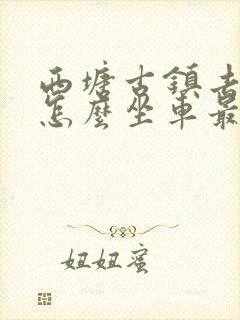 西塘古鎮去
怎麼坐車最
妞妞蜜